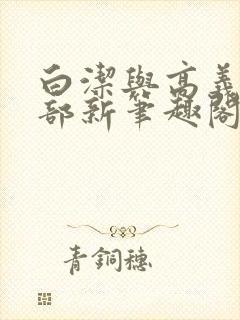 白潔與高義
部新筆趣閣
青銅穗